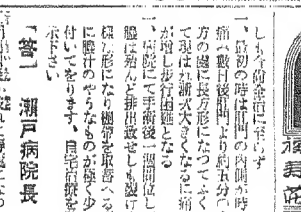 しも今尚全治に至らず
一、最初の時は肛門の内側が時
痛み數日後肛門より約五分の
方の處に長方形になつてふく
て現はれ漸次大きくなるに痛
が増し步行困難となる
一、病院にて手術後一週間位し
膿は殆んど排出致せしも裂け
樣な形になり綿帶を取替へる
に膿汁のやうなものが極く少
付いてをります、自宅治療を
示下さい
【答】 瀨戶病院長